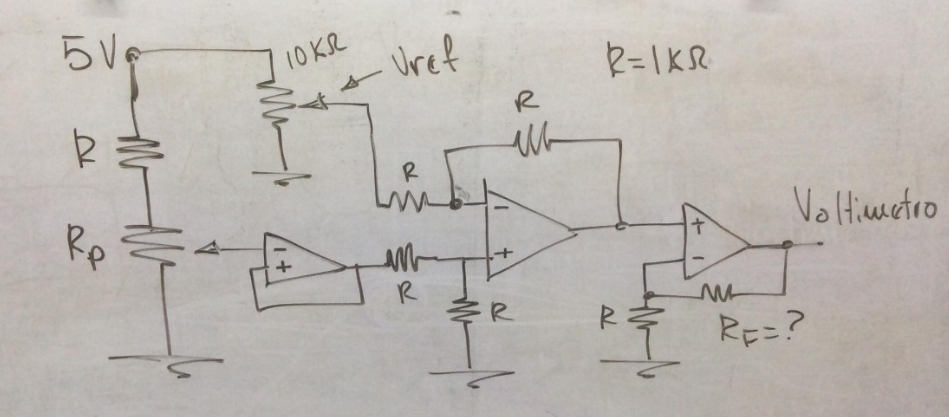 5V
10KΩ
Vref
R=1KΩ
R
R
R
Rp
R
R
- +
- +
+ -
R
RF=?
Voltimetro